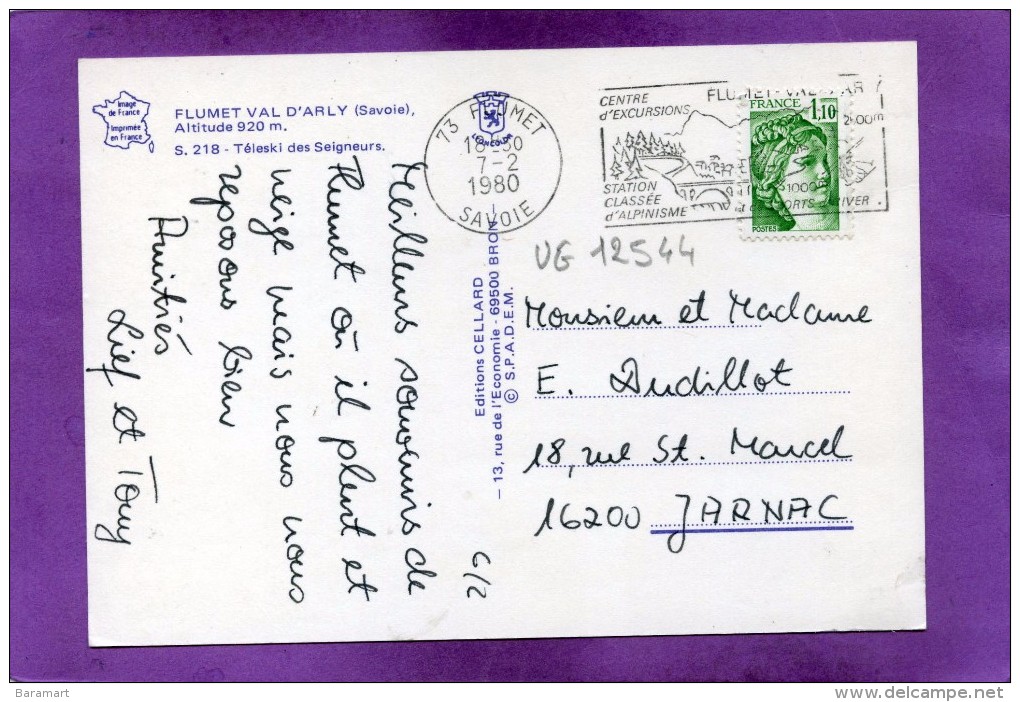 Image
de France
Imprimée
en France
FLUMET VAL D'ARLY (Savoie),
Altitude 920 m.
S. 218 - Téleski des Seigneurs.
LYONCOLOR
73 FLUMET
7-2
1980
SAVOIE
CENTRE
d'EXCURSIONS
STATION
CLASSÉE
d'ALPINISME
FRANCE
1,10
POSTES
VG 12544
6/2
Meilleurs souvenirs de
Flumet où il pleut et
neige mais nous nous
reposons bien
Amitiés
Lief et Tony
Editions CELLARD
– 13, rue de l'Economie - 69500 BRON –
© S.P.A.D.E.M.
Monsieur et Madame
E. Dudillot
18, rue St. Marcel
16200 JARNAC
Baramart
www.delcampe.net